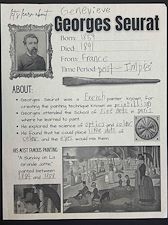 Genevieve
Georges Seurat
Born: 1859
Died: 1891
From: France
Time Period: post-Impres
ABOUT:
Georges Seurat was a French painter known for
creating the painting technique known as pointillism
Georges attended the School of Fine Arts in paris
where he learned to paint.
He explored the science of optics and color
He found that he could place tiny dots of
color, and the eyes would mix them
HIS MOST FAMOUS PAINTING:
"A Sunday on La
Grande Jatte"
painted between
1884 and 1886